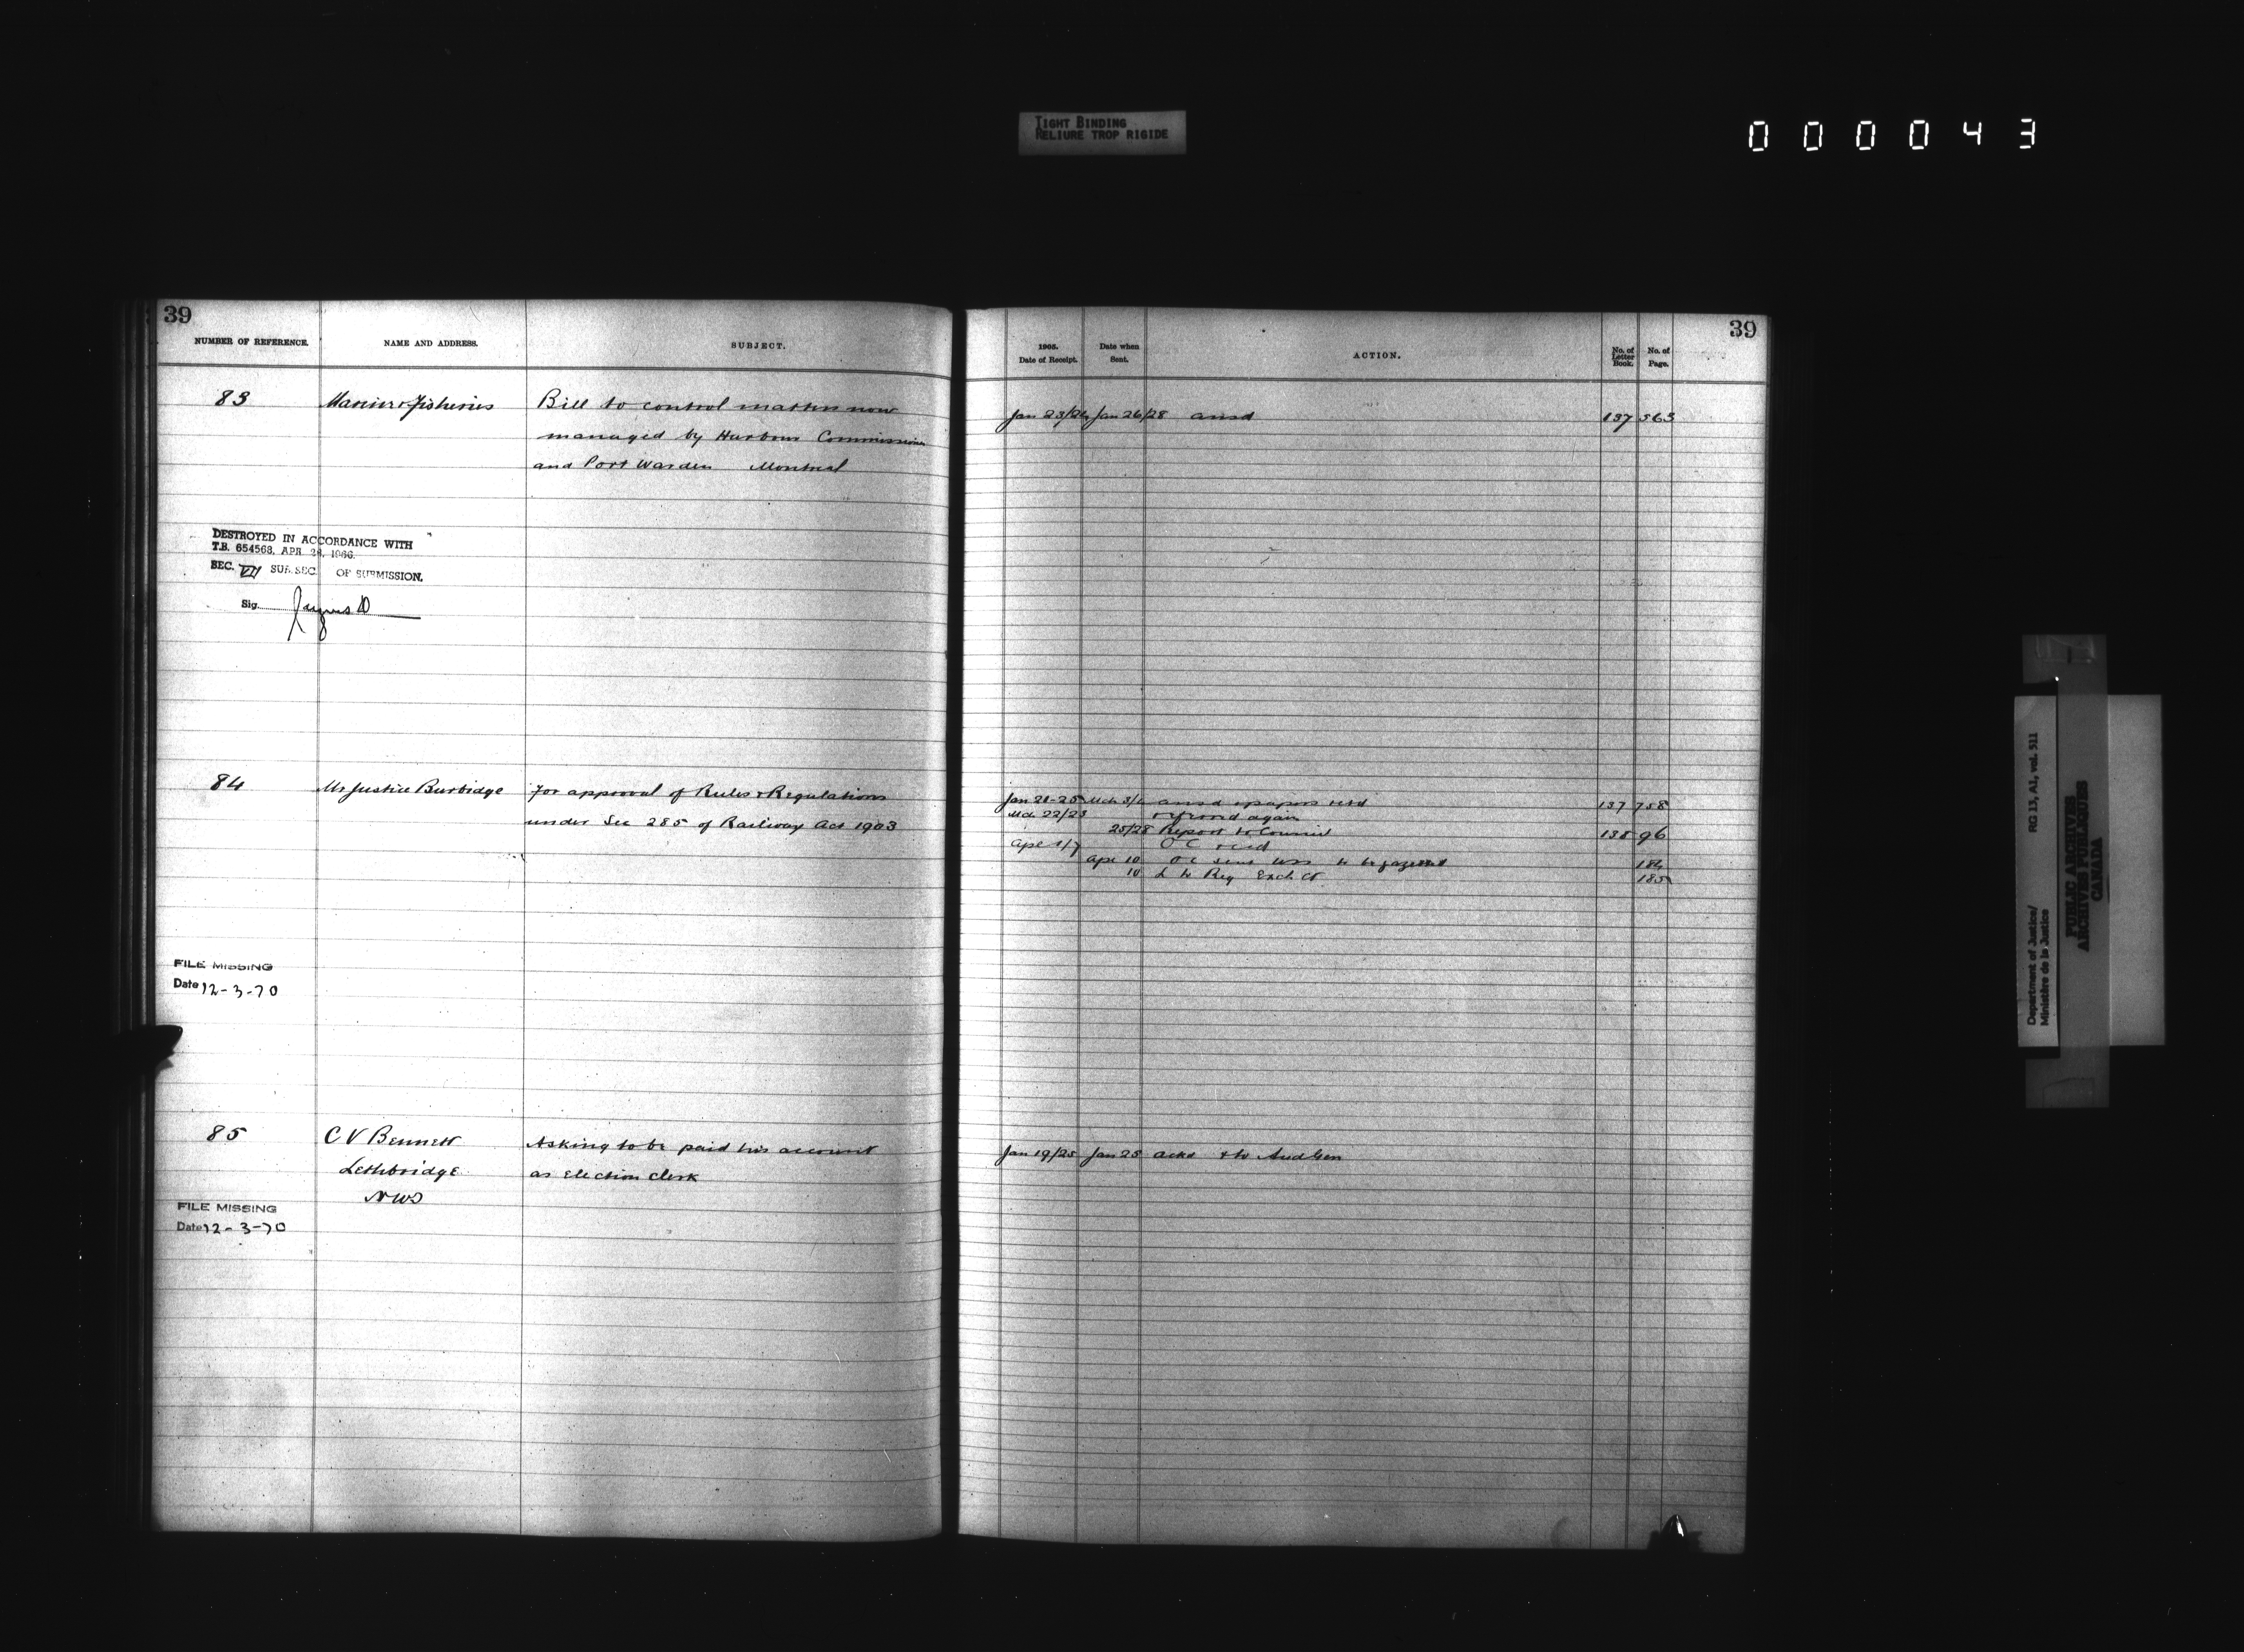 TIGHT BINDING
RELIURE TROP RIGIDE
000043
39
NUMBER OF REFERENCE.
NAME AND ADDRESS.
SUBJECT.
83
Marine & Fisheries
Bill to control matters now
managed by Harbour Commissioners
and Port Warden Montreal
DESTROYED IN ACCORDANCE WITH
T.B. 654568, APR 28, 1966.
SEC. VII SUB.SEC. OF SUBMISSION.
Sig.
84
Mr Justice Burbidge
For approval of Rules & Regulations
under Sec 285 of Railway Act 1903
FILE MISSING
Date 12-3-70
85
C V Bennett
Lethbridge
NWT
Asking to be paid his account
as Election Clerk
FILE MISSING
Date 12-3-70
39
1905.
Date of Receipt.
Date when
Sent.
ACTION.
No. of
Letter
Book.
No. of
Page.
Jan 23/26 Jan 26/28 ansd 137 563
Jan 21-25 Mch 3/4 ansd & papers retd 137 758
Mch 22/23 referred again
25/28 Report to Council 138 96
Apl 1/7 OC recd
Apl 10 OC sent USS to be gazetted 184
10 L to Reg Exch Ct 185
Jan 19/25 Jan 25 ackd & to Aud Gen
Department of Justice/
Ministère de la Justice
RG 13, A1, vol. 511
PUBLIC ARCHIVES
ARCHIVES PUBLIQUES
CANADA